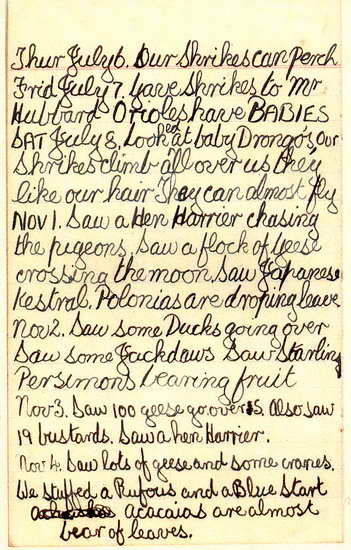 Thur July 6. Our Shrikes can perch
Frid July 7. Gave Shrikes to Mr
Hubbard Orioles have BABIES
SAT July 8. Looked at baby Drongo's Our
Shrikes climb all over us they
like our hair They can almost fly
NOV 1. Saw a Hen Harrier chasing
the pigeons, Saw a flock of geese
crossing the moon, Saw Japanese
Kestral. Polonias are droping leave
Nov 2. Saw some Ducks going over
Saw some Jackdaws Saw Starling
Persimons bearing fruit
Nov 3. Saw 100 geese go over S. Also saw
19 bustards. Saw a hen Harrier.
Nov 4. Saw lots of geese and some cranes.
We stuffed a Rufous and a Blue Start
acacaias are almost
bear of leaves.